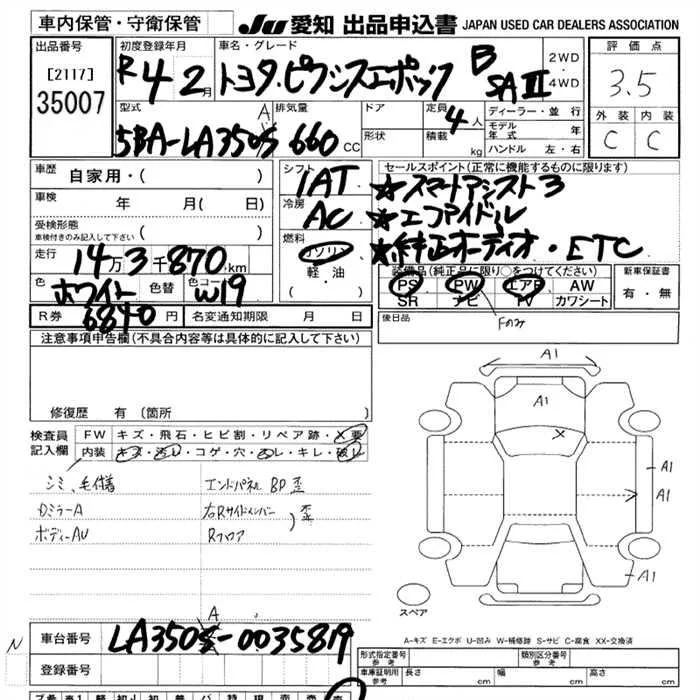 車内保管・守衛保管 JU 愛知 出品申込書 JAPAN USED CAR DEALERS ASSOCIATION
出品番号
[2117]
35007
初度登録年月
R4 2月
車名・グレード
トヨタ・ピクシスエポック B SAⅢ
2WD
・
4WD
評価点
3.5
外装 内装
C C
型式
5BA-LA350S A
排気量
660 cc
ドア
形状
定員 4人
積載 kg
ディーラー・並行
モデル年式 年
ハンドル 左・右
車歴
自家用・( )
車検
年 月( 日)
受検形態
車検付きのみ記入して下さい ( )
走行
14万3千870km
色
ホワイト
色替
色コード
W19
R券 6840円
名変通知期限 月 日
シフト
IAT
冷房
AC
燃料
ガソリン
・
軽油
( )
セールスポイント(正常に機能するものに限ります)
☆スマートアシスト3
☆エコアイドル
☆純正オーディオ・ETC
装備品(純正品に限り○をつけてください)
PS PW エアB AW
SR ナビ TV カワシート
Fのみ
新車保証書
有・無
後日品
注意事項申告欄(不具合内容等は具体的に記入して下さい)
修復歴 有(箇所
検査員
記入欄
FW キズ・飛石・ヒビ割・リペア跡・X要
内装 キズ・汚レ・コゲ・穴・スレ・キレ・破レ
シミ、毛付着
DミラーA
ボディーAU
エンドパネル BP 歪
右Rサイドメンバー
Rフロア
)歪
A1
A1
X
A1
A1
A1
スペア
A-キズ E-エクボ U-凹み W-補修跡 S-サビ C-腐食 XX-交換済
N
車台番号 LA350S-0035819 A
登録番号
形式指定番号
参考
類別区分番号
参考
車庫証明用
参考
長さ cm 幅 cm 高さ cm